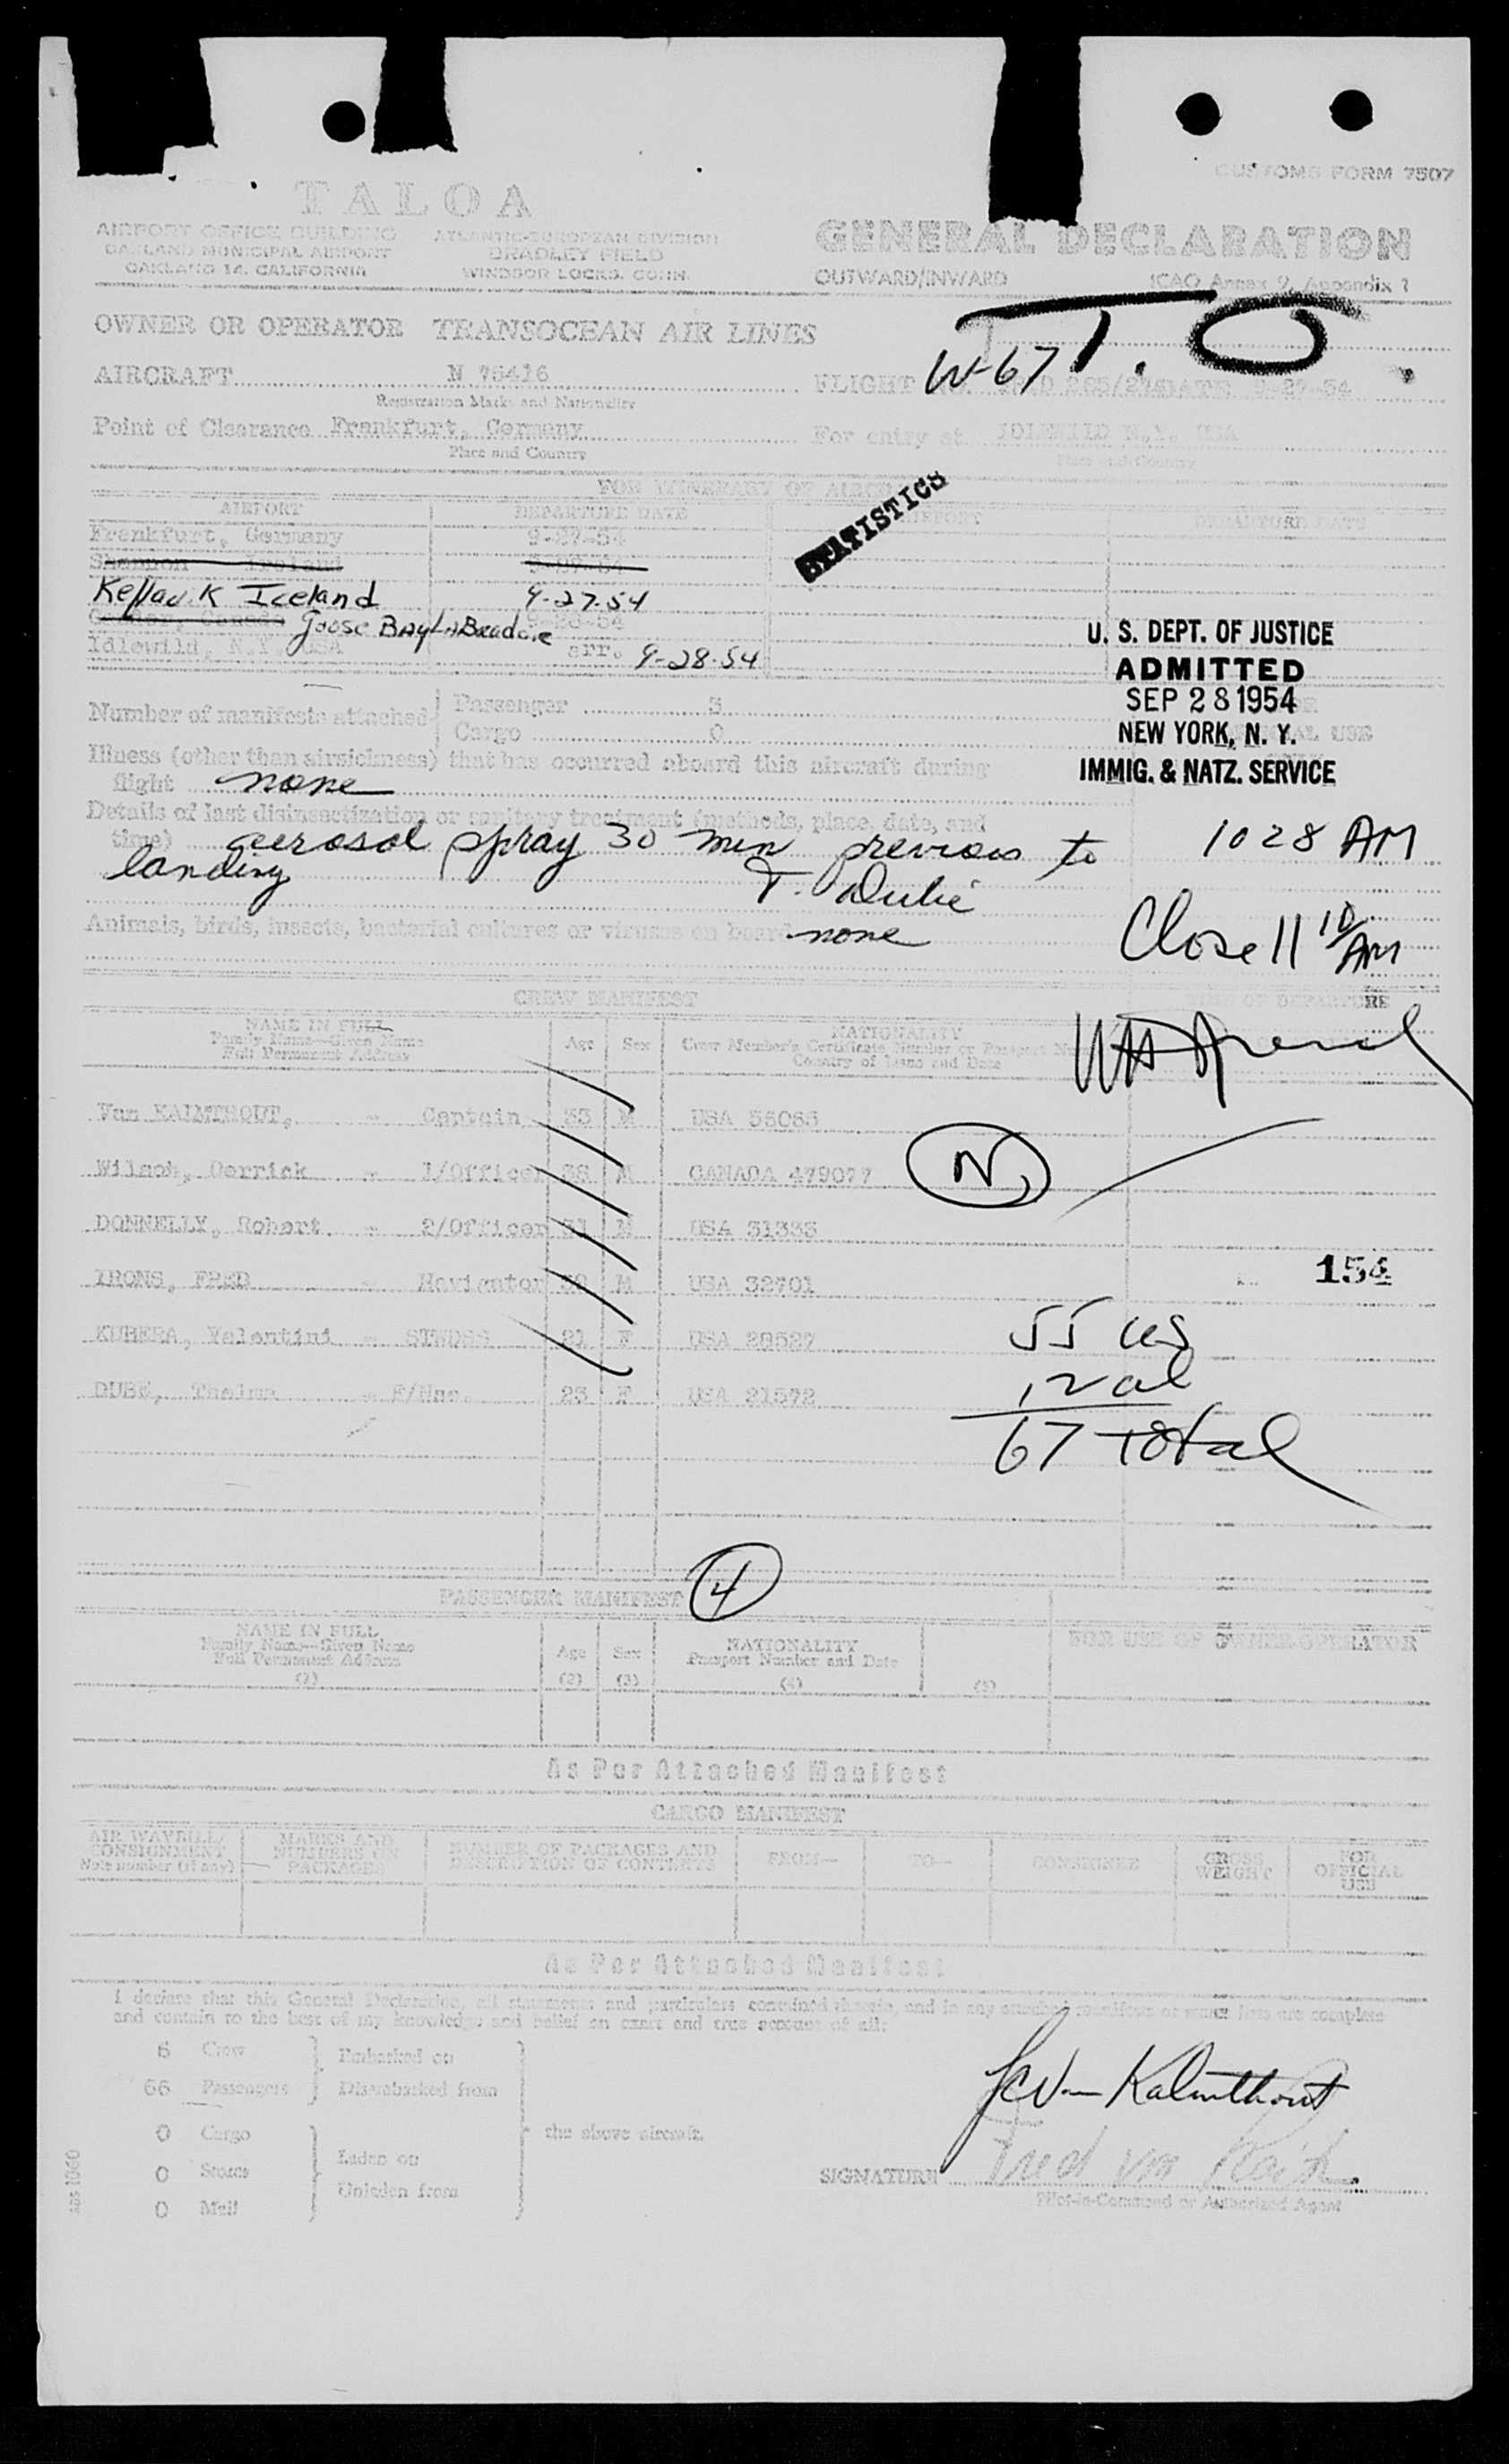 CUSTOMS FORM 7507
TALOA
AIRPORT OFFICE BUILDING
OAKLAND MUNICIPAL AIRPORT
OAKLAND 14, CALIFORNIA
ATLANTIC-EUROPEAN DIVISION
BRADLEY FIELD
WINDSOR LOCKS, CONN.
GENERAL DECLARATION
OUTWARD/INWARD ICAO Annex 9, Appendix 1
T.O
OWNER OR OPERATOR TRANSOCEAN AIR LINES
W-67
AIRCRAFT N 75416
Registration Marks and Nationality
FLIGHT NO. DATE 9-27-54
Point of Clearance Frankfurt, Germany
Place and Country
For entry at IDLEWILD N.Y. USA
Place and Country
STATISTICS
FOR ITINERARY OF AIRCRAFT
AIRPORT DEPARTURE DATE AIRPORT DEPARTURE DATE
Frankfurt, Germany 9-27-54
Shannon Ireland
Keflavik Iceland 9-27-54
Goose Bay Labradore
Idlewild, N.Y. USA arr. 9-28-54
U. S. DEPT. OF JUSTICE
ADMITTED
SEP 28 1954
NEW YORK, N. Y.
IMMIG. & NATZ. SERVICE
Number of manifests attached
Passenger 3
Cargo 0
Illness (other than airsickness) that has occurred aboard this aircraft during
flight none
Details of last disinsectization or sanitary treatment (methods, place, date, and
time) aerosol spray 30 min previous to
landing T. Dube
1028 AM
Animals, birds, insects, bacterial cultures or viruses on board none
Close 11 10 AM
CREW MANIFEST
NAME IN FULL
Family Name—Given Name
Full Permanent Address
Age Sex
NATIONALITY
Crew Member's Certificate Number or Passport
Country of Issue and Date
Van KALMTHOUT, - Captain 33 M USA 55083
Wilson, Derrick - 1/Officer 38 M CANADA 479077
N
DONNELLY, Robert - 2/Officer 31 M USA 31333
IRONS, FRED - Navigator M USA 32701
154
KUBERA, Valentini - STWDSS 21 F USA 28527
DUBE, Thelma - F/Nur. 23 F USA 21572
55 us
12 al
67 total
PASSENGER MANIFEST
4
NAME IN FULL
Family Name—Given Name
Full Permanent Address
(1)
Age
(2)
Sex
(3)
NATIONALITY
Passport Number and Date
(4)
(5)
FOR USE OF OWNER-OPERATOR
As Per Attached Manifest
CARGO MANIFEST
AIR WAYBILL/
CONSIGNMENT
Note number (if any)
MARKS AND
NUMBERS ON
PACKAGES
NUMBER OF PACKAGES AND
DESCRIPTION OF CONTENTS
FROM—
TO—
CONSIGNEE
GROSS
WEIGHT
FOR
OFFICIAL
USE
As Per Attached Manifest
I declare that this General Declaration, all statements and particulars contained therein, and in any attached manifests or crew lists are complete
and contain to the best of my knowledge and belief an exact and true account of all:
6 Crew
66 Passengers
Embarked on
Disembarked from
0 Cargo
0 Stores
0 Mail
Laden on
Unladen from
the above aircraft.
Van Kalmthout
SIGNATURE
Pilot-in-Command or Authorized Agent